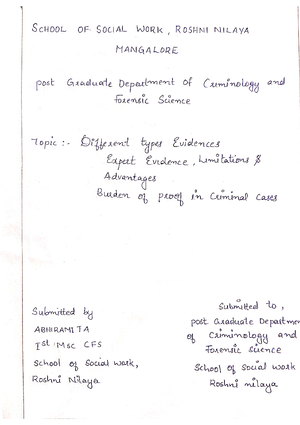 SCHOOL OF SOCIAL WORK, ROSHNI NILAYA
MANGALORE
post Graduate Department of Criminology and
Forensic Science
Topic :- Different types Evidences
Expert Evidence, Limitations &
Advantages
Burden of proof in Criminal Cases
Submitted by
ABHIRAMI T A
Ist MSC CFS
School of Social work,
Roshni Nilaya
Submitted to,
post Graduate Departmen
of Criminology and
Forensic Science
School of Social work
Roshni nilaya